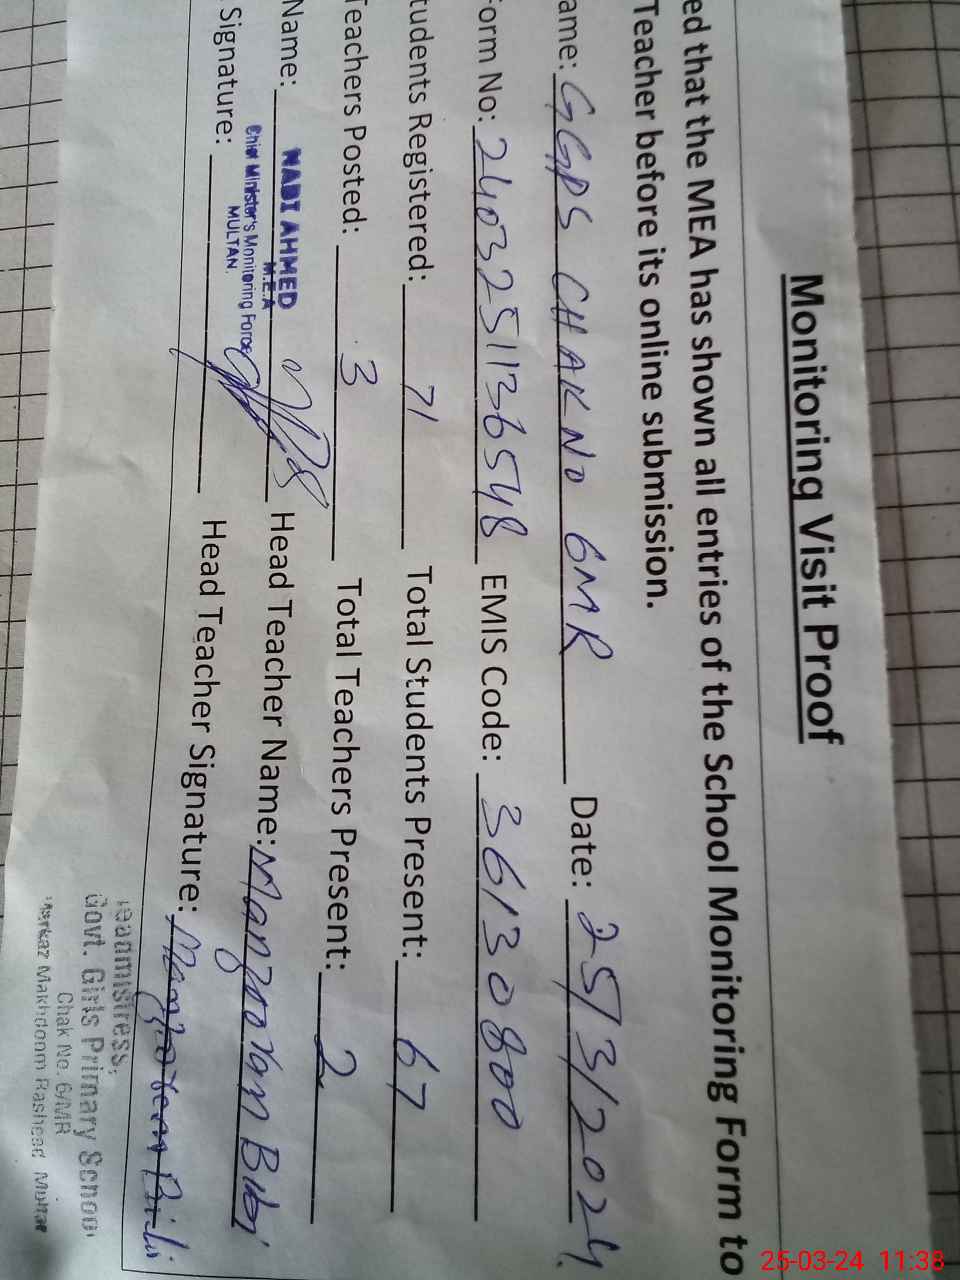 Monitoring Visit Proof
ed that the MEA has shown all entries of the School Monitoring Form to
Teacher before its online submission.
ame: GGPS CHAK NO 6MR Date: 25/3/2024
orm No: 24032511136548 EMIS Code: 36130800
tudents Registered: 71 Total Students Present: 67
Teachers Posted: 3 Total Teachers Present: 2
Name: NADI AHMED Head Teacher Name: Manzooran Bibi
M.E.A
Chief Minister's Monitoring Force
MULTAN.
Signature: Head Teacher Signature: Manzooran Bibi
Headmistress,
Govt. Girls Primary School
Chak No. 6/MR
Markaz Makhdoom Rasheed
25-03-24 11:38